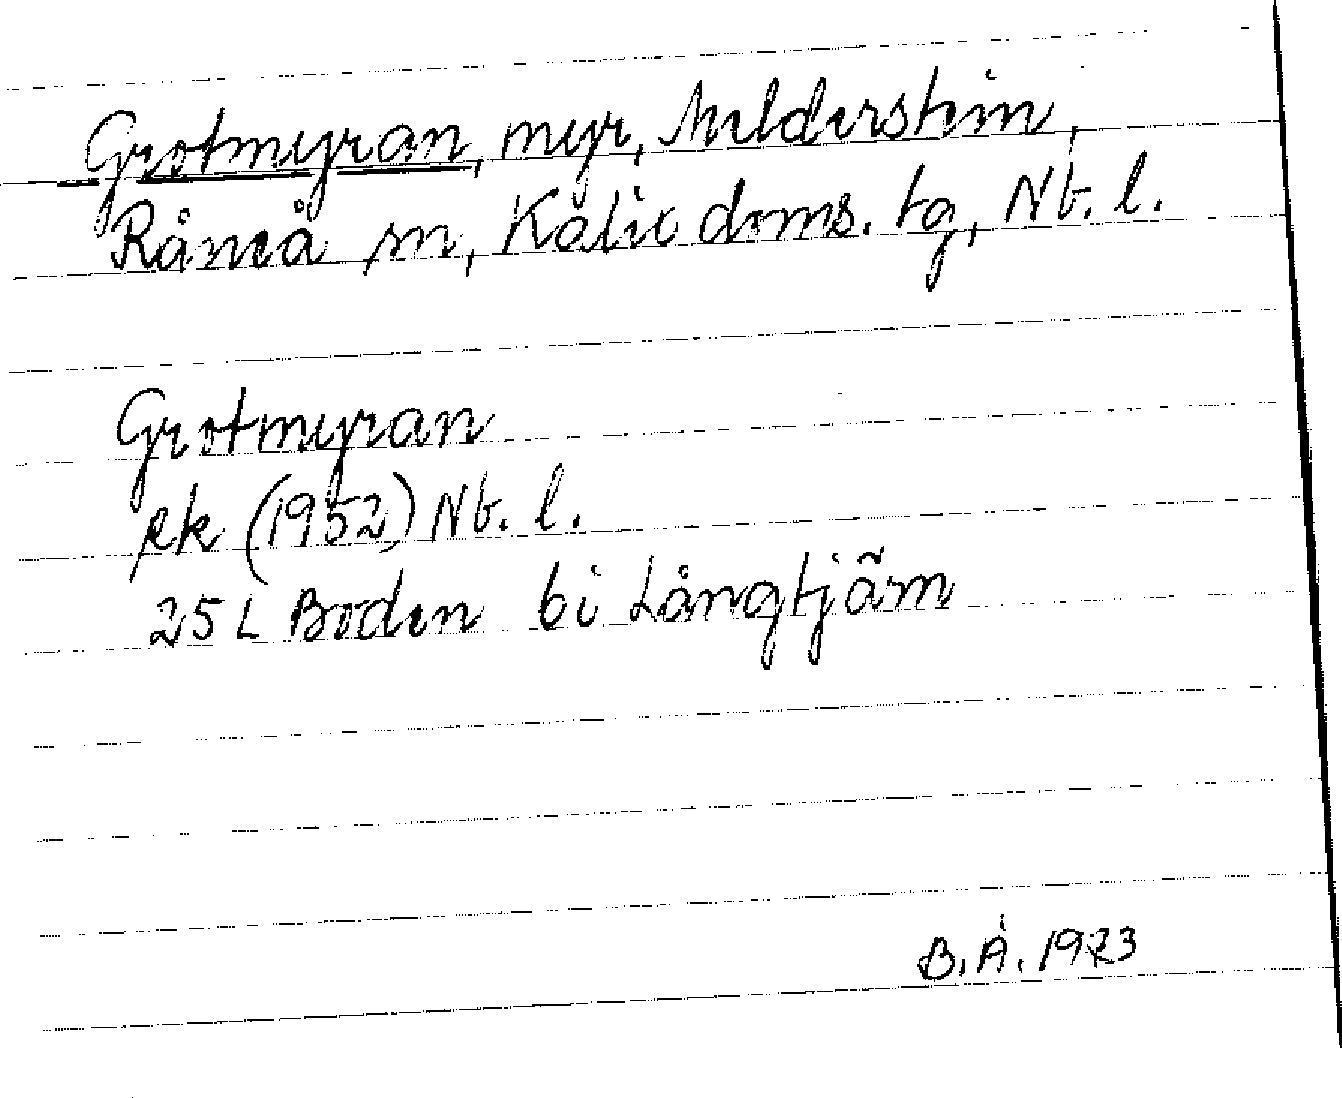 Grotmyran, myr, Melderstein,
Råneå sn, Kalix doms. tg, Nb. l.
Grotmyran
ek (1952) Nb. l.
25 L Boden bi Långtjärn
B. Å. 1973